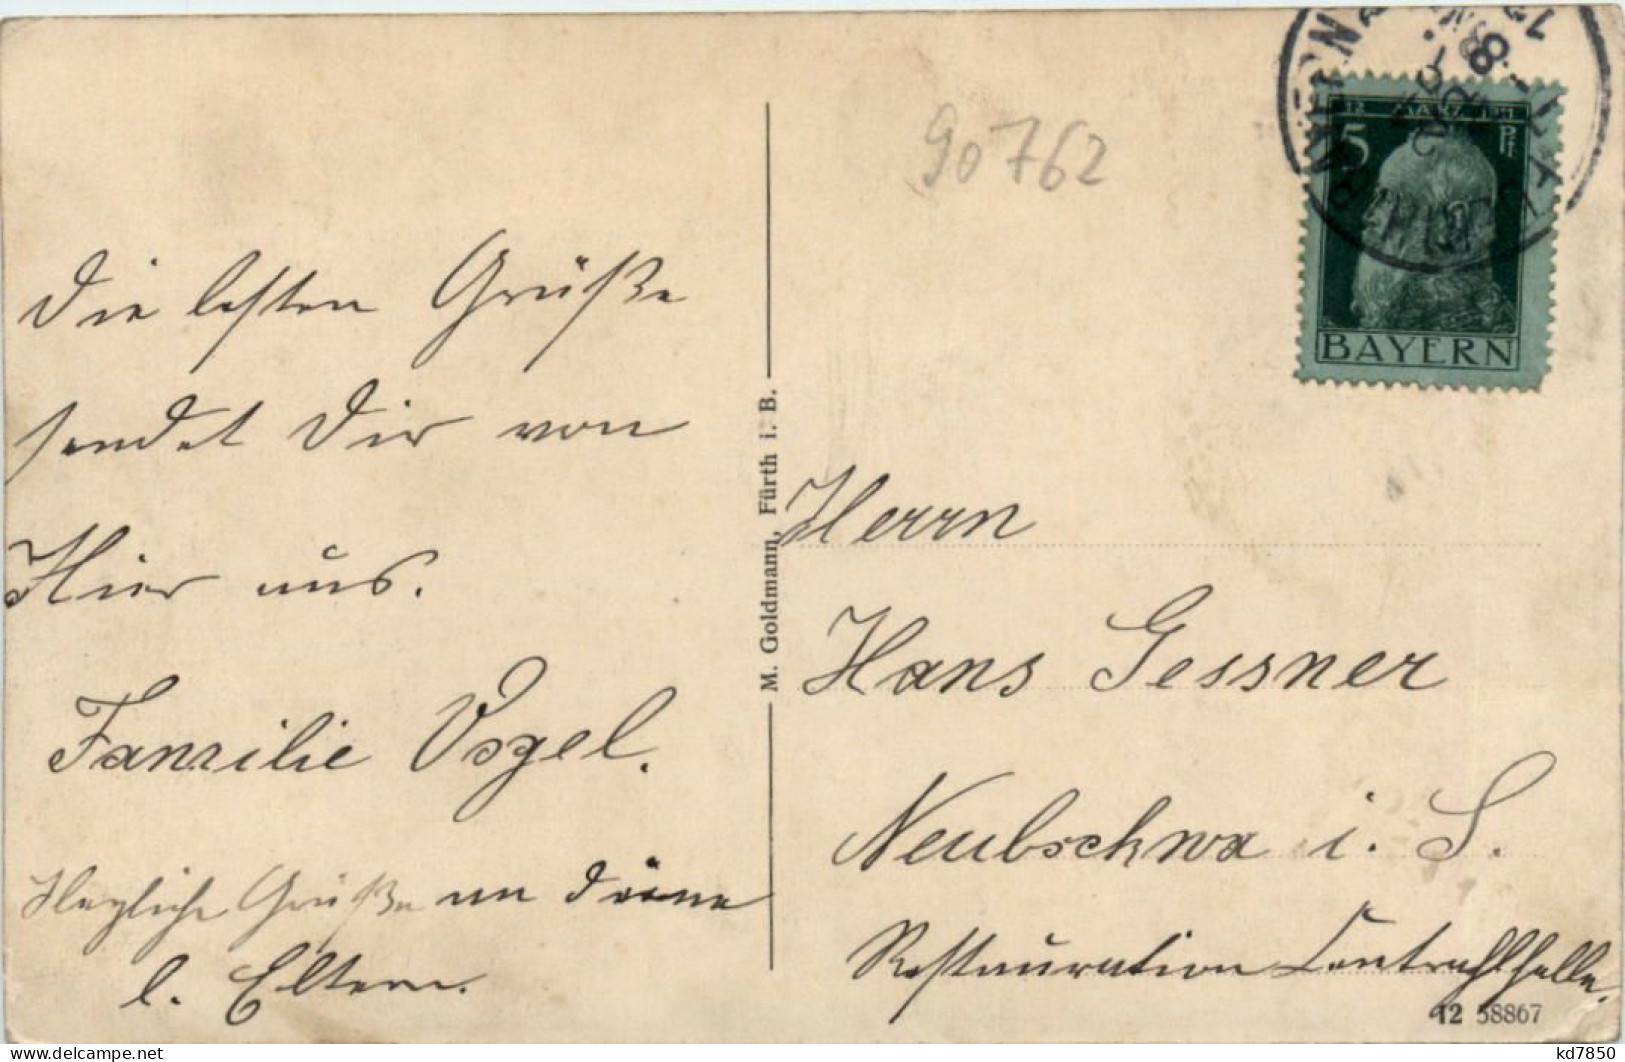 90762
12. MÄRZ 1911
5 Pf
BAYERN
Die besten Grüße
sendet Dir von
Hier aus.
Familie Vogel.
Herzliche Grüße an Deine
l. Eltern.
M. Goldmann, Fürth i. B.
Herrn
Hans Gessner
Neubschwa i. S.
Restauration Centralhalle.
12 58867
kd7850